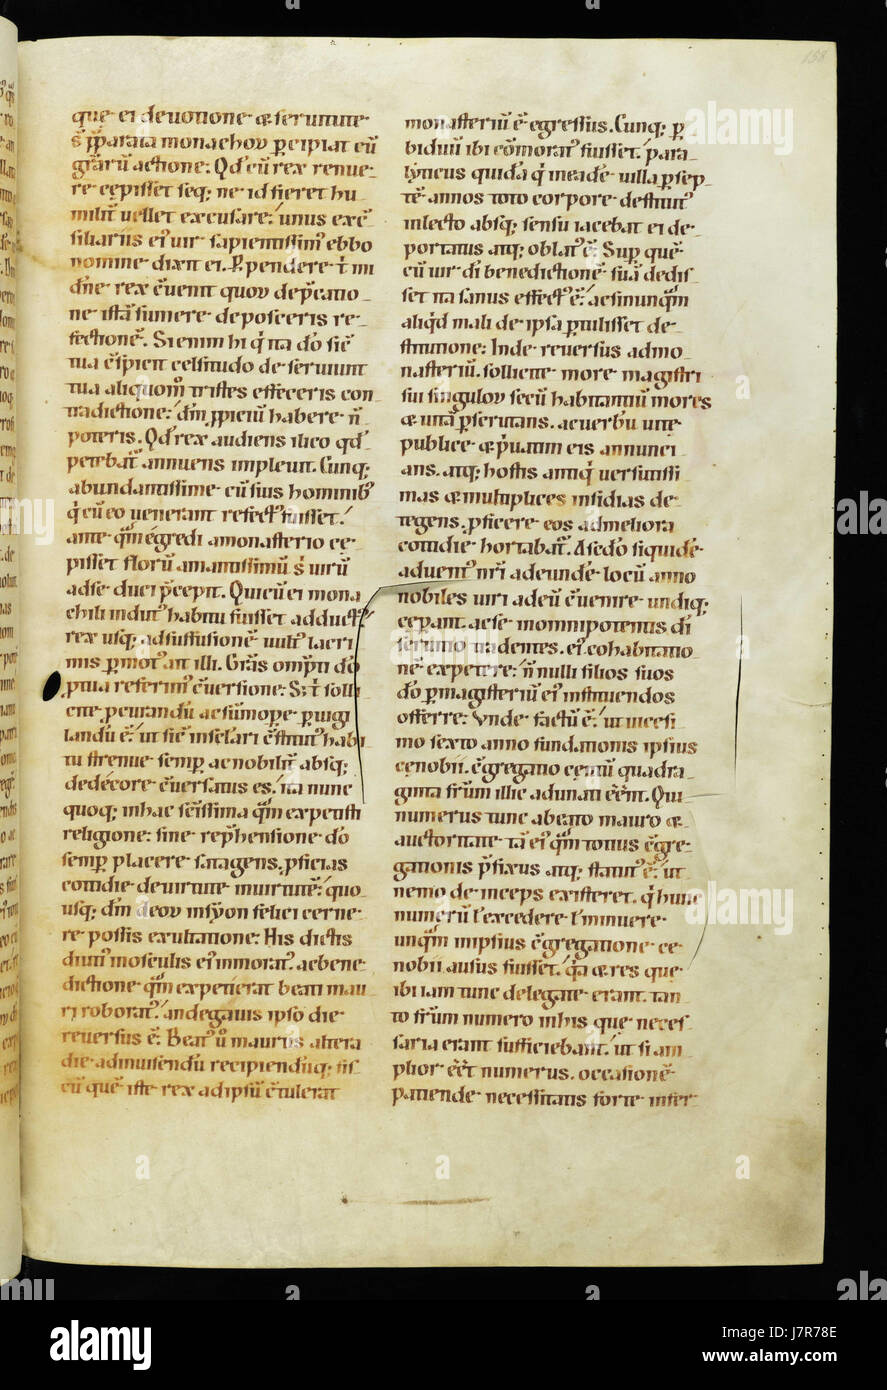 que ei deuotione & seruitute
monachou p̄cipiat cū
grārū actione: Qd̄ cū rex renue
re cępisset seq; ne id fieret hu
uellet excusare: unus
siliariis ei᾿ uir sapientissim᾿ ebbo
nomine dixit ei.
dn̄e rex
ne istā sumere deposceris re
fectionē. Si enim hi q̇ ita dō sic̄
tua celsitudo deseruiunt
tua aliquom̄ tristes effeceris con
tradictione: habere n̄
poteris. Qd̄ rex audiens ilico qd̄
petebat᾿ annuens impleuit. Cunq;
abundantissime cū suis hominib᾿
q̇ cū eo uenerant refect᾿ fuisset.
ante q̄m egredi amonasterio cę
pisset florū amantissimū s̄ uirū
adse duci p̄cepit. Qui cū ei mona
chili indut᾿ habitu fuisset adduct᾿
rex usq; ad suffusionē uult᾿ lacri
mis p̄mot᾿ ait illi. Grās omp̄ti dō
p tua referim᾿ c̄uersione: S;
cite p̄curandū ac sūmope p̄uigi
landū ē. ut sic̄ in sęc̄lari habi
tu strenue semp̄ ac nobilit̄ absq;
dedecore c̄uersatus es. ita nunc
quoq; in hac sc̄issima q̄m expetisti
religione: sine rep̄hensione dō
semp̄ placere satagens. p̄ficias
cotidie de uirtute in uirtutē. quo
usq; deou in syon felici cerne
re possis exultatione: His dictis
diuti᾿ in osculis ei᾿ inmorat᾿. ac bene
dictione q̄m expetierat beati mau
ri roborat᾿. andegauis ipso die
reuersus ē. Beat᾿ u̅ maurus altera
die admitsendū recipiendūq; fis
cū quē iste rex ad ipsū c̄tulerat
monasteriū ē egressus. Cunq; p̄
biduū ibi cōmorat᾿ fuisset. para
lyticus quidā q̇ in eadē uilla p̄ sep
tē annos toto corpore destitut᾿
in lecto absq; sensu iacebat ei de
portatus atq; oblat᾿ ē. Sup̄ quē
cū uir dī benedictionē suā dedis
set ita sanus effect᾿ ē. acsi nunq̄m
aliq̇d mali de ipsa p̄tulisset de
stitutione: Inde reuersus ad mo
nasteriū. sollicite more magistri
sui singulou secū habitantiū mores
& uitā p̄scrutans. ac uerbū uitę
publice & p̄uatim eis annunci
ans. atq; hostis antiq̇ uersutissi
mas & multiplices insidias de
tegens. p̄ficere eos ad meliora
cotidie hortabat᾿. A sc̄do siquidē
aduent᾿ nr̄i ad eundē locū anno
nobiles uiri ad eū c̄uenire undiq;
cępant. ac se in omnipotentis dī
seruitio tradentes. ei᾿ cohabitatio
nē expetere: n̄ nulli filios suos
dō p̄ magisteriū ei᾿ instituendos
offerre: Vnde factū ē. ut uicesi
mo sexto anno fundationis ipsius
cęnobii. c̄gregatio centū quadra
ginta frūm illic adunati cēnt. Qui
numerus tunc abeato mauro &
auctoritate tā ei᾿ q̄m totius c̄gre
gationis p̄fixus atq; statut᾿ ē. ut
nemo deinceps existeret. q̇ hunc
numerū ł excedere ł minuere
unq̄m in ipsius c̄gregatione cę
nobii ausus fuisset. q̄a & res quę
ibi iam tunc delegatę erant. tan
to frūm numero in his que neces
saria erant sufficiebant. ut si am
plior cēt numerus. occasionē
patiende necessitatis forte infer
158
alamy
a
J7R78E
www.alamy.com